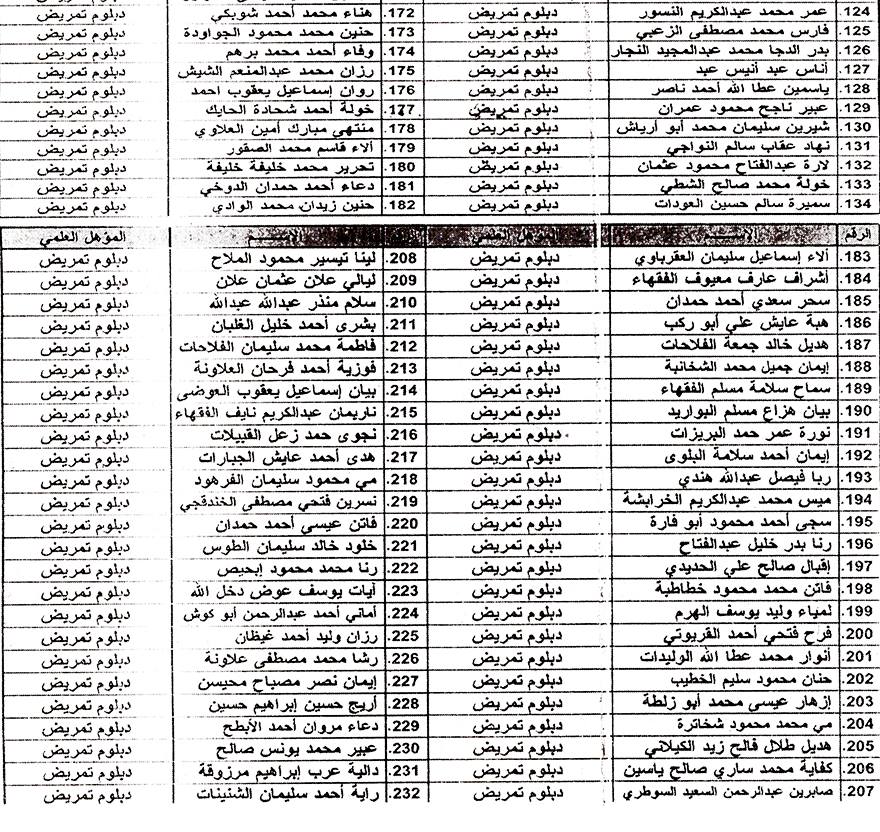 124. عمر محمد عبدالكريم النسور دبلوم تمريض 172. هناء محمد أحمد شوبكي دبلوم تمريض
125. فارس محمد مصطفى الزعبي دبلوم تمريض 173. حنين محمد محمود الجواودة دبلوم تمريض
126. بدر الدجا محمد عبدالمجيد النجار دبلوم تمريض 174. وفاء أحمد محمد برهم دبلوم تمريض
127. أناس عبد أنيس عبد دبلوم تمريض 175. رزان محمد عبدالمنعم الشيش دبلوم تمريض
128. ياسمين عطا الله أحمد ناصر دبلوم تمريض 176. روان إسماعيل يعقوب احمد دبلوم تمريض
129. عبير ناجح محمود عمران دبلوم تمريض 177. خولة أحمد شحادة الحايك دبلوم تمريض
130. شيرين سليمان محمد أبو أرياش دبلوم تمريض 178. منتهى مبارك أمين العلاوي دبلوم تمريض
131. نهاد عقاب سالم النواجي دبلوم تمريض 179. ألاء قاسم محمد الصقور دبلوم تمريض
132. لارة عبدالفتاح محمود عثمان دبلوم تمريض 180. تحرير محمد خليفة خليفة دبلوم تمريض
133. خولة محمد صالح الشطي دبلوم تمريض 181. دعاء أحمد حمدان الدوخي دبلوم تمريض
134. سميرة سالم حسين العودات دبلوم تمريض 182. حنين زيدان محمد الوادي دبلوم تمريض
الرقم الإســـم المؤهل العلمي الإســـم المؤهل العلمي
183. ألاء إسماعيل سليمان العقرباوي دبلوم تمريض 208. لينا تيسير محمود الملاح دبلوم تمريض
184. أشراف عارف معيوف الفقهاء دبلوم تمريض 209. ليالي علان عثمان علان دبلوم تمريض
185. سحر سعدي أحمد حمدان دبلوم تمريض 210. سلام منذر عبدالله عبدالله دبلوم تمريض
186. هبة عايش علي أبو ركب دبلوم تمريض 211. بشرى أحمد خليل الغلبان دبلوم تمريض
187. هديل خالد جمعة الفلاحات دبلوم تمريض 212. فاطمة محمد سليمان الفلاحات دبلوم تمريض
188. إيمان جميل محمد الشخانبة دبلوم تمريض 213. فوزية أحمد فرحان العلاونة دبلوم تمريض
189. سماح سلامة مسلم الفقهاء دبلوم تمريض 214. بيان إسماعيل يعقوب العوضى دبلوم تمريض
190. بيان هزاع مسلم البواريد دبلوم تمريض 215. ناريمان عبدالكريم نايف الفقهاء دبلوم تمريض
191. نورة عمر حمد البريزات دبلوم تمريض 216. نجوى حمد زعل القبيلات دبلوم تمريض
192. إيمان أحمد سلامة البلوى دبلوم تمريض 217. هدى أحمد عايش الجبارات دبلوم تمريض
193. ربا فيصل عبدالله هندي دبلوم تمريض 218. مي محمود سليمان الفرهود دبلوم تمريض
194. ميس محمد عبدالكريم الخرابشة دبلوم تمريض 219. نسرين فتحي مصطفى الخندقجي دبلوم تمريض
195. سجى أحمد محمود أبو فارة دبلوم تمريض 220. فاتن عيسى أحمد حمدان دبلوم تمريض
196. رنا بدر خليل عبدالفتاح دبلوم تمريض 221. خلود خالد سليمان الطوس دبلوم تمريض
197. إقبال صالح علي الحديدي دبلوم تمريض 222. رنا محمد محمود إبحيص دبلوم تمريض
198. فاتن محمد محمود خطاطبة دبلوم تمريض 223. آيات يوسف عوض دخل الله دبلوم تمريض
199. لمياء وليد يوسف الهرم دبلوم تمريض 224. أماني أحمد عبدالرحمن أبو كوش دبلوم تمريض
200. فرح فتحي أحمد القريوتي دبلوم تمريض 225. رزان وليد أحمد غيظان دبلوم تمريض
201. أنوار محمد عطا الله الوليدات دبلوم تمريض 226. رشا محمد مصطفى علاونة دبلوم تمريض
202. حنان محمود سليم الخطيب دبلوم تمريض 227. إيمان نصر مصباح محيسن دبلوم تمريض
203. إزهار عيسى محمد أبو زلطة دبلوم تمريض 228. أريج حسين إبراهيم حسين دبلوم تمريض
204. مي محمد محمود شخاترة دبلوم تمريض 229. دعاء مروان أحمد الأبطح دبلوم تمريض
205. هديل طلال فالح زيد الكيلاني دبلوم تمريض 230. عبير محمد يونس صالح دبلوم تمريض
206. كفاية محمد ساري صالح ياسين دبلوم تمريض 231. دالية عرب إبراهيم مرزوقة دبلوم تمريض
207. صابرين عبدالرحمن السعيد السوطري دبلوم تمريض 232. راية أحمد سليمان الشنينات دبلوم تمريض